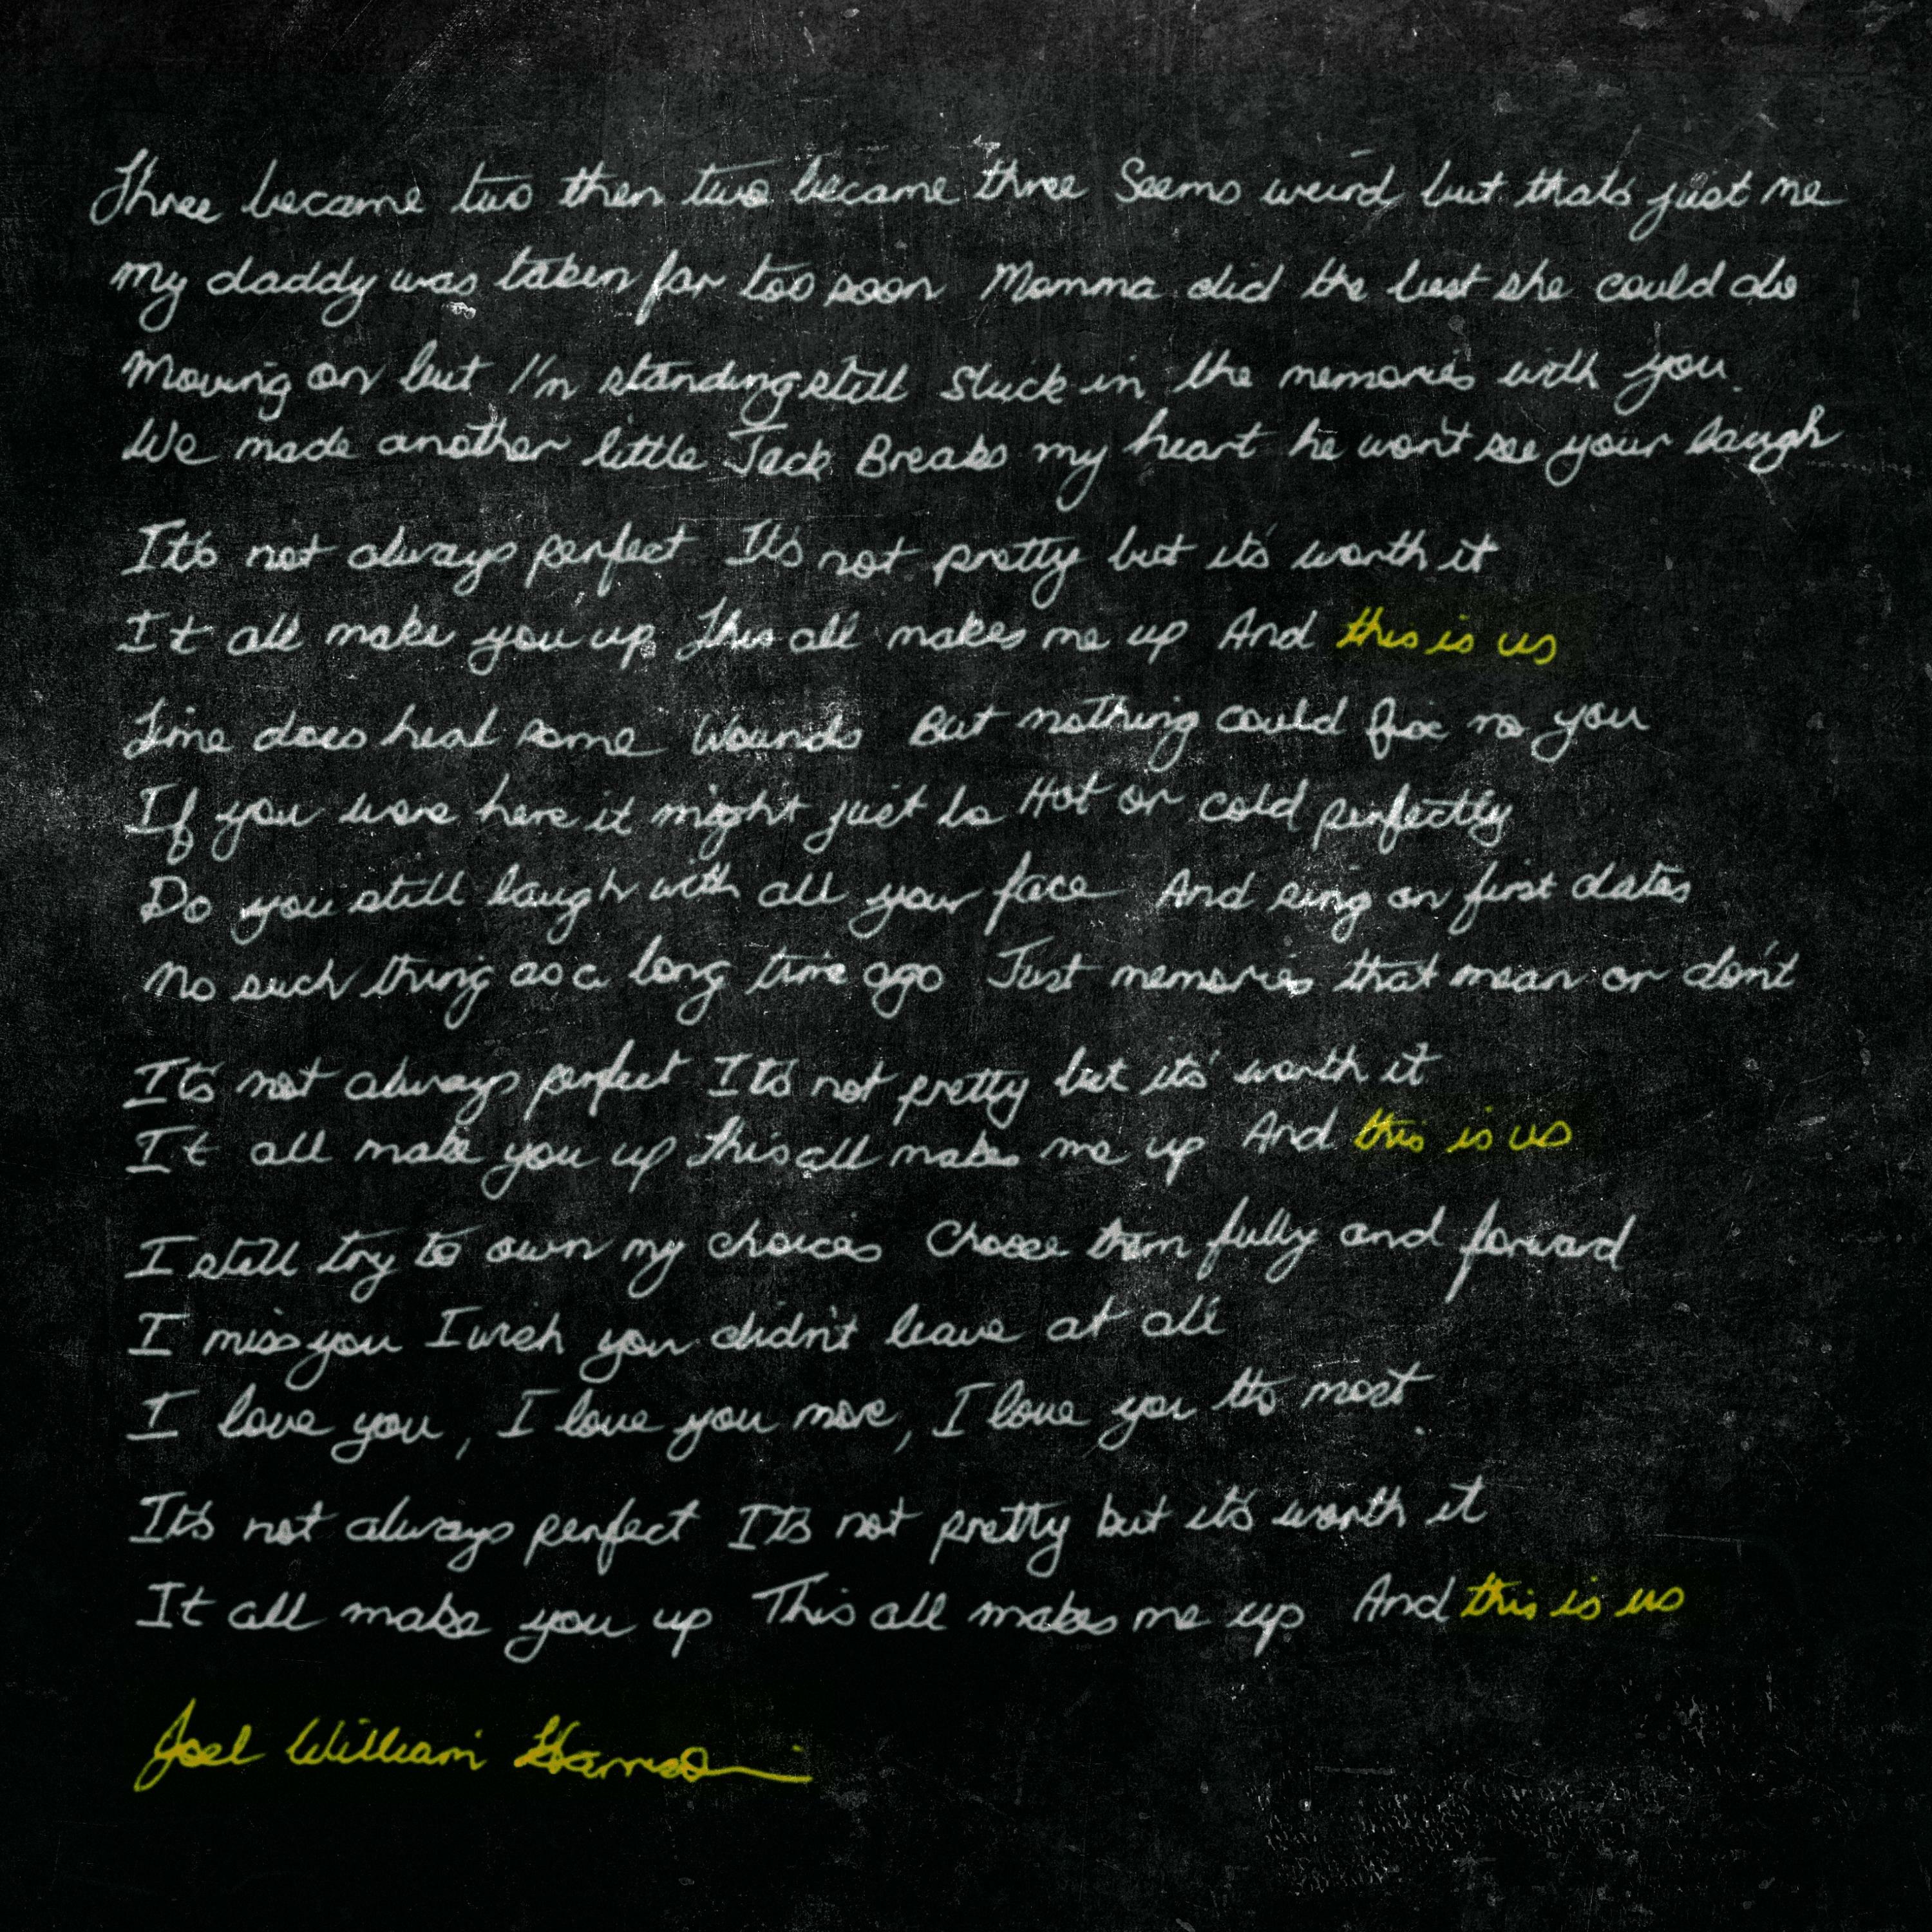 Three became two then two became three Seems weird but that's just me
my daddy was taken far too soon Momma did the best she could do
Moving on but I'm standing still Stuck in the memories with you
We made another little Jack Breaks my heart he won't see your laugh
It's not always perfect It's not pretty but it's worth it
It all make you up This all makes me up And this is us
Time does heal some wounds But nothing could fix no you
If you were here it might just be Hot or cold perfectly
Do you still laugh with all your face And sing on first dates
No such thing as a long time ago Just memories that mean or don't
It's not always perfect It's not pretty but it's worth it
It all make you up This all makes me up And this is us
I still try to own my choices Choose them fully and forward
I miss you I wish you didn't leave at all
I love you, I love you more, I love you the most.
It's not always perfect It's not pretty but it's worth it
It all make you up This all makes me up And this is us
Joel William